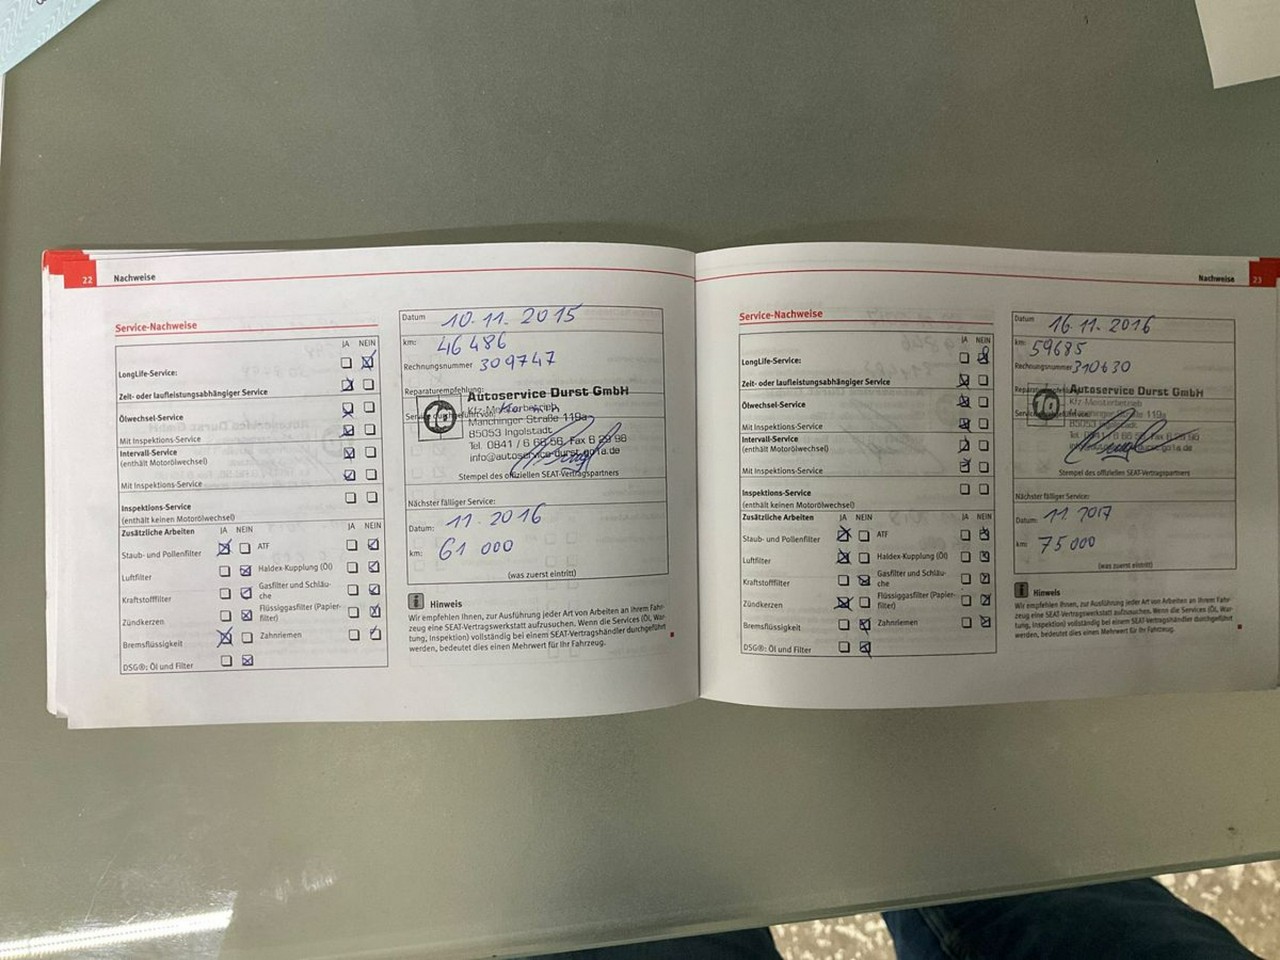 22 Nachweise
Service-Nachweise
JA NEIN
LongLife-Service:
Zeit- oder laufleistungsabhängiger Service
Ölwechsel-Service
Mit Inspektions-Service
Intervall-Service
(enthält Motorölwechsel)
Mit Inspektions-Service
Inspektions-Service
(enthält keinen Motorölwechsel)
Zusätzliche Arbeiten JA NEIN JA NEIN
Staub- und Pollenfilter ATF
Luftfilter Haldex-Kupplung (Öl)
Kraftstofffilter Gasfilter und Schläu-
che
Zündkerzen Flüssiggasfilter (Papier-
filter)
Bremsflüssigkeit Zahnriemen
DSG®: Öl und Filter
Datum 10.11.2015
km: 46 486
Rechnungsnummer 309747
Reparaturempfehlung:
Autoservice Durst GmbH
Kfz-Meisterbetrieb
Manchinger Straße 119a
85053 Ingolstadt
Tel. 0841 / 6 66 56, Fax 6 29 96
info@autoservice-durst.go1a.de
Stempel des offiziellen SEAT-Vertragspartners
Nächster fälliger Service:
Datum: 11.2016
km: 61 000
(was zuerst eintritt)
Hinweis
Wir empfehlen Ihnen, zur Ausführung jeder Art von Arbeiten an Ihrem Fahr-
zeug eine SEAT-Vertragswerkstatt aufzusuchen. Wenn die Services (Öl, War-
tung, Inspektion) vollständig bei einem SEAT-Vertragshändler durchgeführt
werden, bedeutet dies einen Mehrwert für Ihr Fahrzeug.
Nachweise 23
Service-Nachweise
JA NEIN
LongLife-Service:
Zeit- oder laufleistungsabhängiger Service
Ölwechsel-Service
Mit Inspektions-Service
Intervall-Service
(enthält Motorölwechsel)
Mit Inspektions-Service
Inspektions-Service
(enthält keinen Motorölwechsel)
Zusätzliche Arbeiten JA NEIN JA NEIN
Staub- und Pollenfilter ATF
Luftfilter Haldex-Kupplung (Öl)
Kraftstofffilter Gasfilter und Schläu-
che
Zündkerzen Flüssiggasfilter (Papier-
filter)
Bremsflüssigkeit Zahnriemen
DSG®: Öl und Filter
Datum 16.11.2016
km: 59685
Rechnungsnummer 310630
Autoservice Durst GmbH
Kfz-Meisterbetrieb
Manchinger Straße 119a
85053 Ingolstadt
Stempel des offiziellen SEAT-Vertragspartners
Nächster fälliger Service:
Datum: 11.2017
km: 75 000
(was zuerst eintritt)
Hinweis
Wir empfehlen Ihnen, zur Ausführung jeder Art von Arbeiten an Ihrem Fahr-
zeug eine SEAT-Vertragswerkstatt aufzusuchen. Wenn die Services (Öl, War-
tung, Inspektion) vollständig bei einem SEAT-Vertragshändler durchgeführt
werden, bedeutet dies einen Mehrwert für Ihr Fahrzeug.